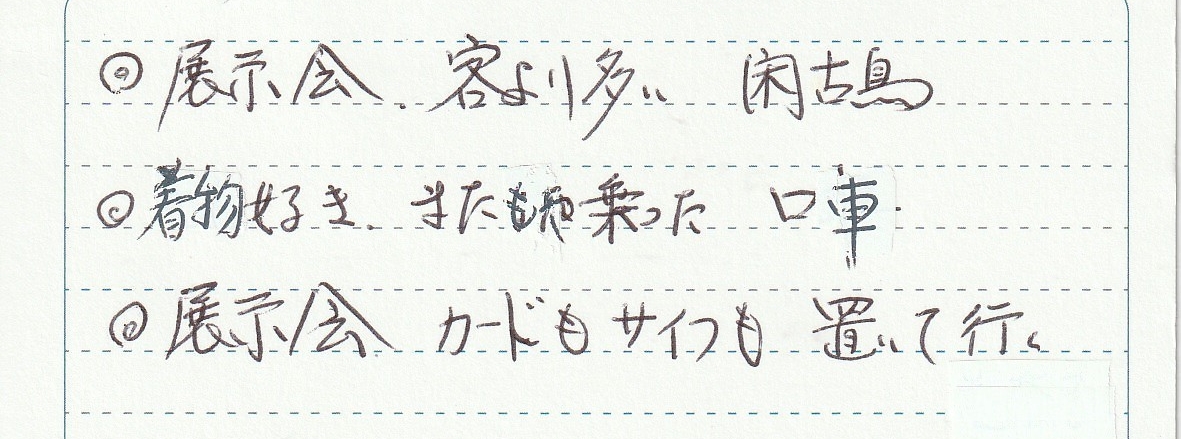 ◎展示会、客より多い 閑古鳥
◎着物好き、またもや乗った 口車
◎展示会 カードもサイフも 置いて行く